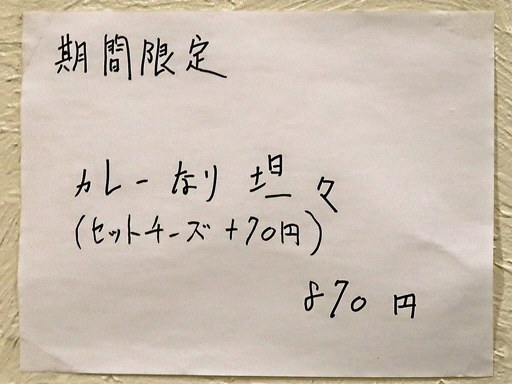 期間限定
カレーなり坦々
(セットチーズ+70円)
870円